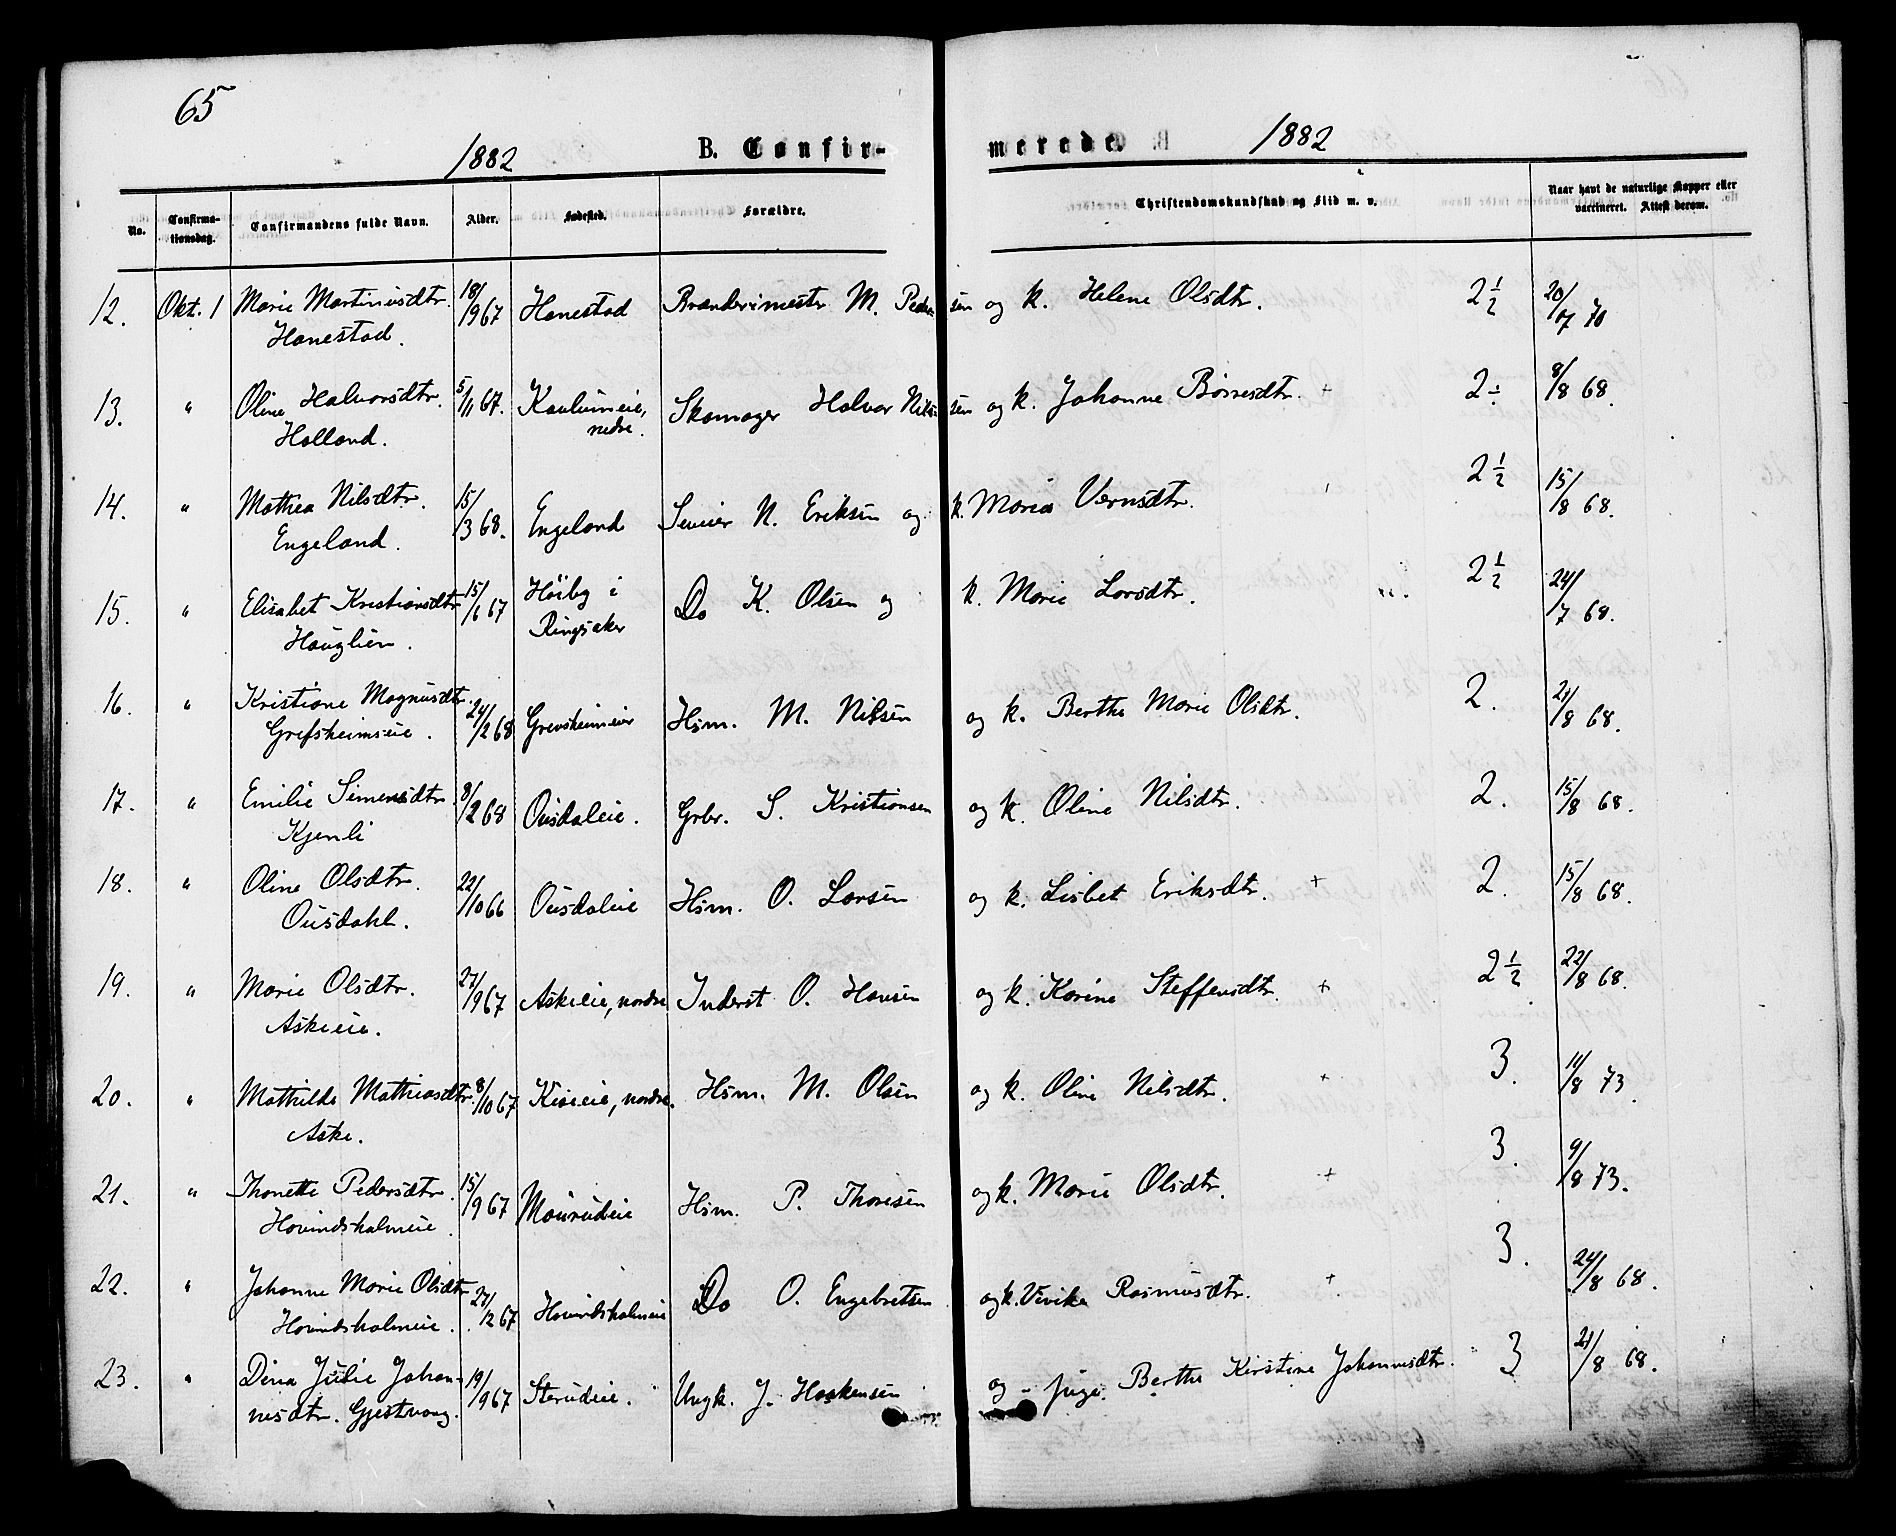 65
1882 B. Confir- merede. 1882
No. Confirma-tionsdag. Confirmandens fulde Navn. Alder. Fødested. Forældre. Christendomskundskab og Flid m. v. Naar havt de naturlige Kopper eller vaccineret. Attest derom.
12. Okt. 1 Marie Martinusdtr. 18/9 67 Hanestad Brænderimester M. Pedersen og k. Helene Olsdtr. 2 1/2 20/7 70
Hanestad.
13. " Oline Halvorsdtr. 5/11 67. Kaulumeie, Skomager Halvor Nilsen og k. Johanne Børresdtr. + 2 ÷ 8/8 68.
Holland. nedre.
14. " Mathea Nilsdtr. 15/3 68. Engeland N. Eriksen og k. Maria Vernsdtr. 2 1/2 15/8 68.
Engeland.
15. " Elisabet Kristiansdtr 15/6 67 Höiby i Do K. Olsen og k. Marie Larsdtr. 2 1/2 24/7 68.
Hauglien. Ringsaker
16. " Kristiane Magnusdtr. 24/2 68 Grevsheimeie Hsm. M. Nilsen og k. Berthe Marie Olsdtr. 2. 21/8 68.
Grefsheimseie.
17. " Emilie Simensdtr. 8/2 68 Ousdaleie. Grbr. S. Kristiansen og k. Oline Nilsdtr. 2. 15/8 68.
Kjenli
18. " Oline Olsdtr. 22/10 66 Ousdaleie Hsm. O. Larsen og k. Lisbet Eriksdtr. + 2. 15/8 68.
Ousdahl.
19. " Marie Olsdtr. 27/9 67 Askeeie, nordre Inderst O. Hansen og k. Karine Steffensdtr. + 2 1/2 22/8 68.
Askeeie.
20. " Mathilde Mathiasdtr. 8/10 67 Kiseeie, nordre. Hsm. M. Olsen og k. Oline Nilsdtr. + 3. 11/8 73.
Aske.
21. " Thonette Pedersdtr. 15/9 67 Mourudeie Hsm. P. Thoresen og k. Marie Olsdtr. + 3. 9/8 73.
Hovindsholmeie
22. " Johanne Marie Olsdtr 27/12 67 Hovindsholmeie Do O. Engebretsen og k. Vivike Rasmusdtr. + 3. 24/8 68.
Hovindsholmeie.
23. " Dina Julie Johan- 19/9 67 Sterudeie. Ungk. J. Haakensen og pige. Berthe Kirstine Johannesdtr. 3 21/8 68.
nesdtr. Gjestvang.